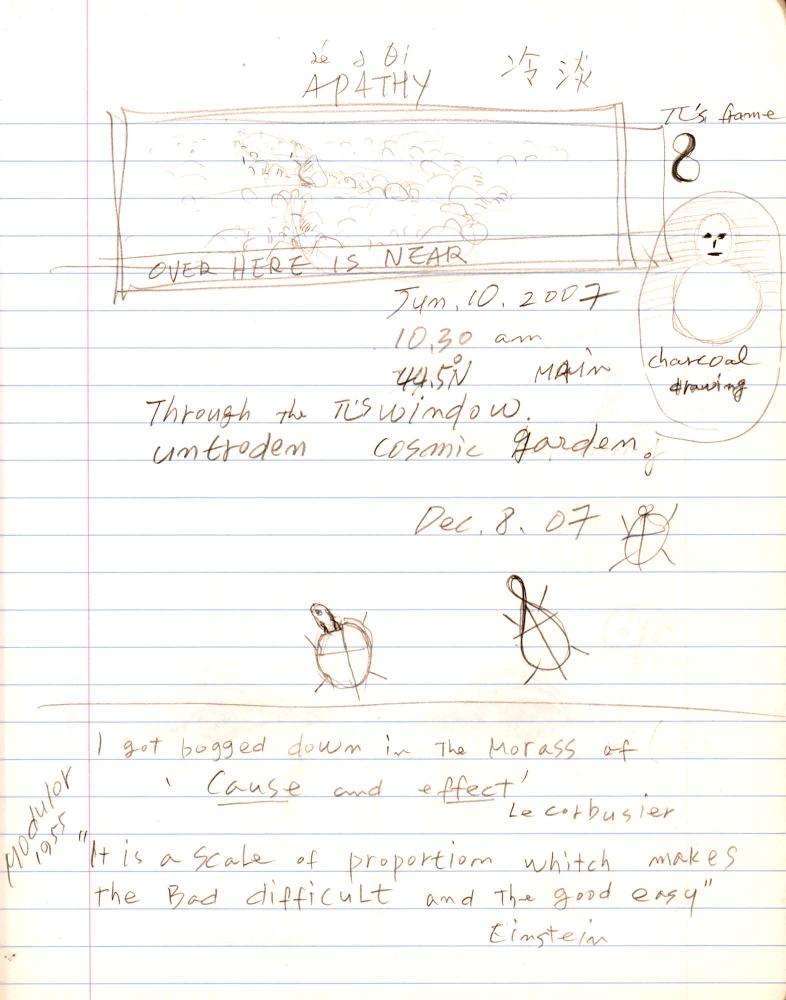 ǽ ə θi
APATHY 冷淡
π's frame
8
OVER HERE IS NEAR
Jun, 10. 2007
10,30 am
44.5°N MAin
charcoal
drawing
Through the π's window.
untroden cosmic garden.
Dec. 8. 07
I got bogged down in The Morass of
'Cause and effect'
Le corbusier
Modulor
1955
"It is a scale of proportion whitch makes
the Bad difficult and The good easy"
Einstein